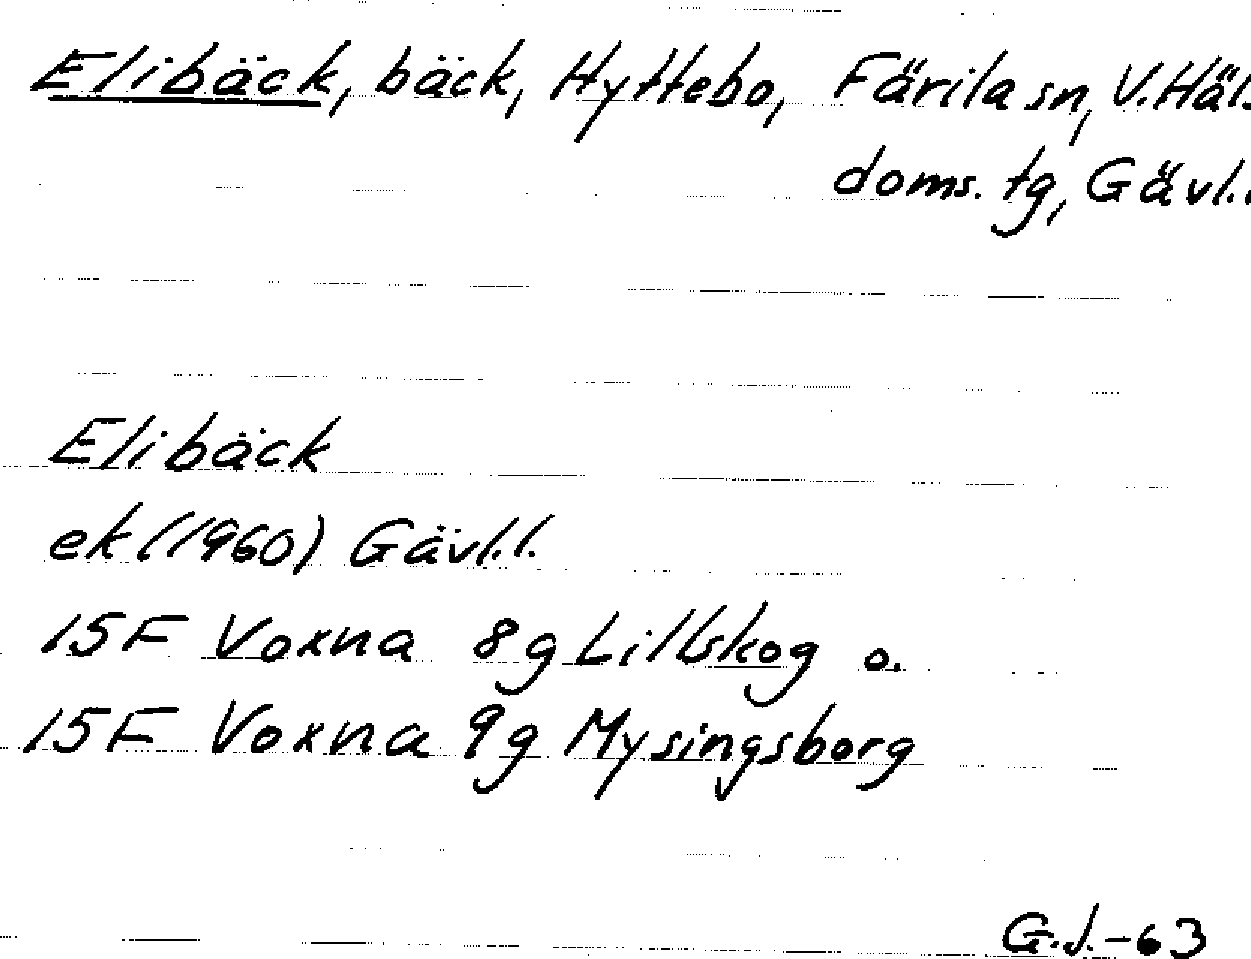 Elibäck, bäck, Hyttebo, Färila sn, V. Häls.
doms. tg, Gävl.l.
Elibäck
ek (1960) Gävl.l.
15F Voxna 8g Lillskog o.
15F Voxna 9g Mysingsborg
G.J.-63